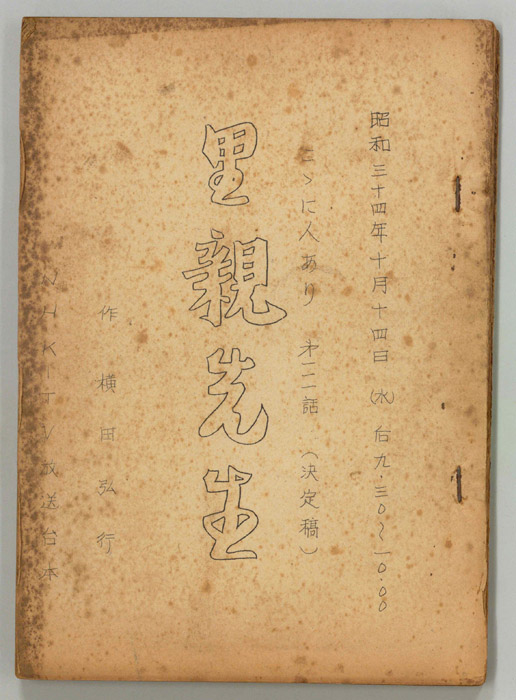 昭和三十四年十月十四日(水)后九.三〇~一〇.〇〇
こゝに人あり 第一二一話 (決定稿)
里親先生
作 横田弘行
NHK-TV放送台本